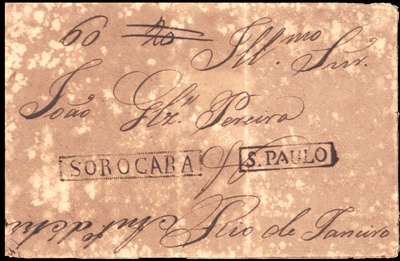 60 20 Ill.mo Snr.
João Glz.^ Pereira
SOROCABA S. PAULO
Rio de Janeiro